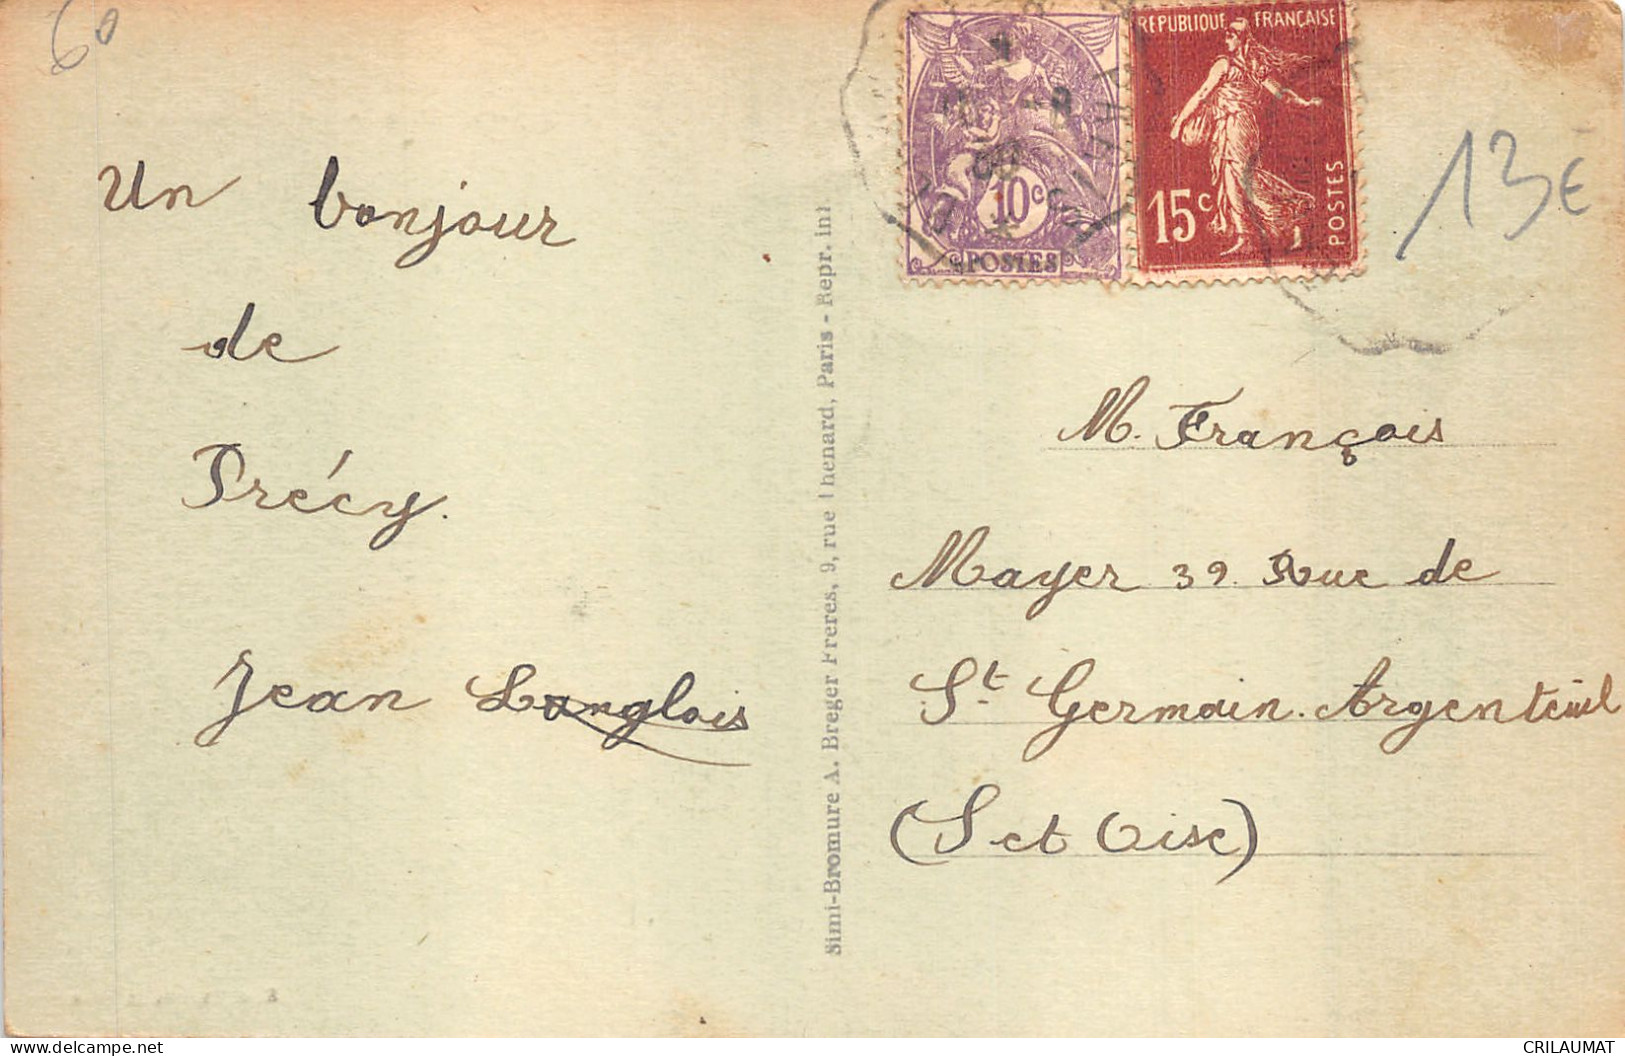 60
Un bonjour
de
Précy.
Jean Langlois
Simi-Bromure A. Breger Frères, 9, rue Thenard, Paris - Repr. int.
10c
POSTES
REPUBLIQUE FRANÇAISE
15c
POSTES
13€
M. François
Mayer 39. Rue de
St Germain. Argenteuil
(S et Oise)
CRILAUMAT